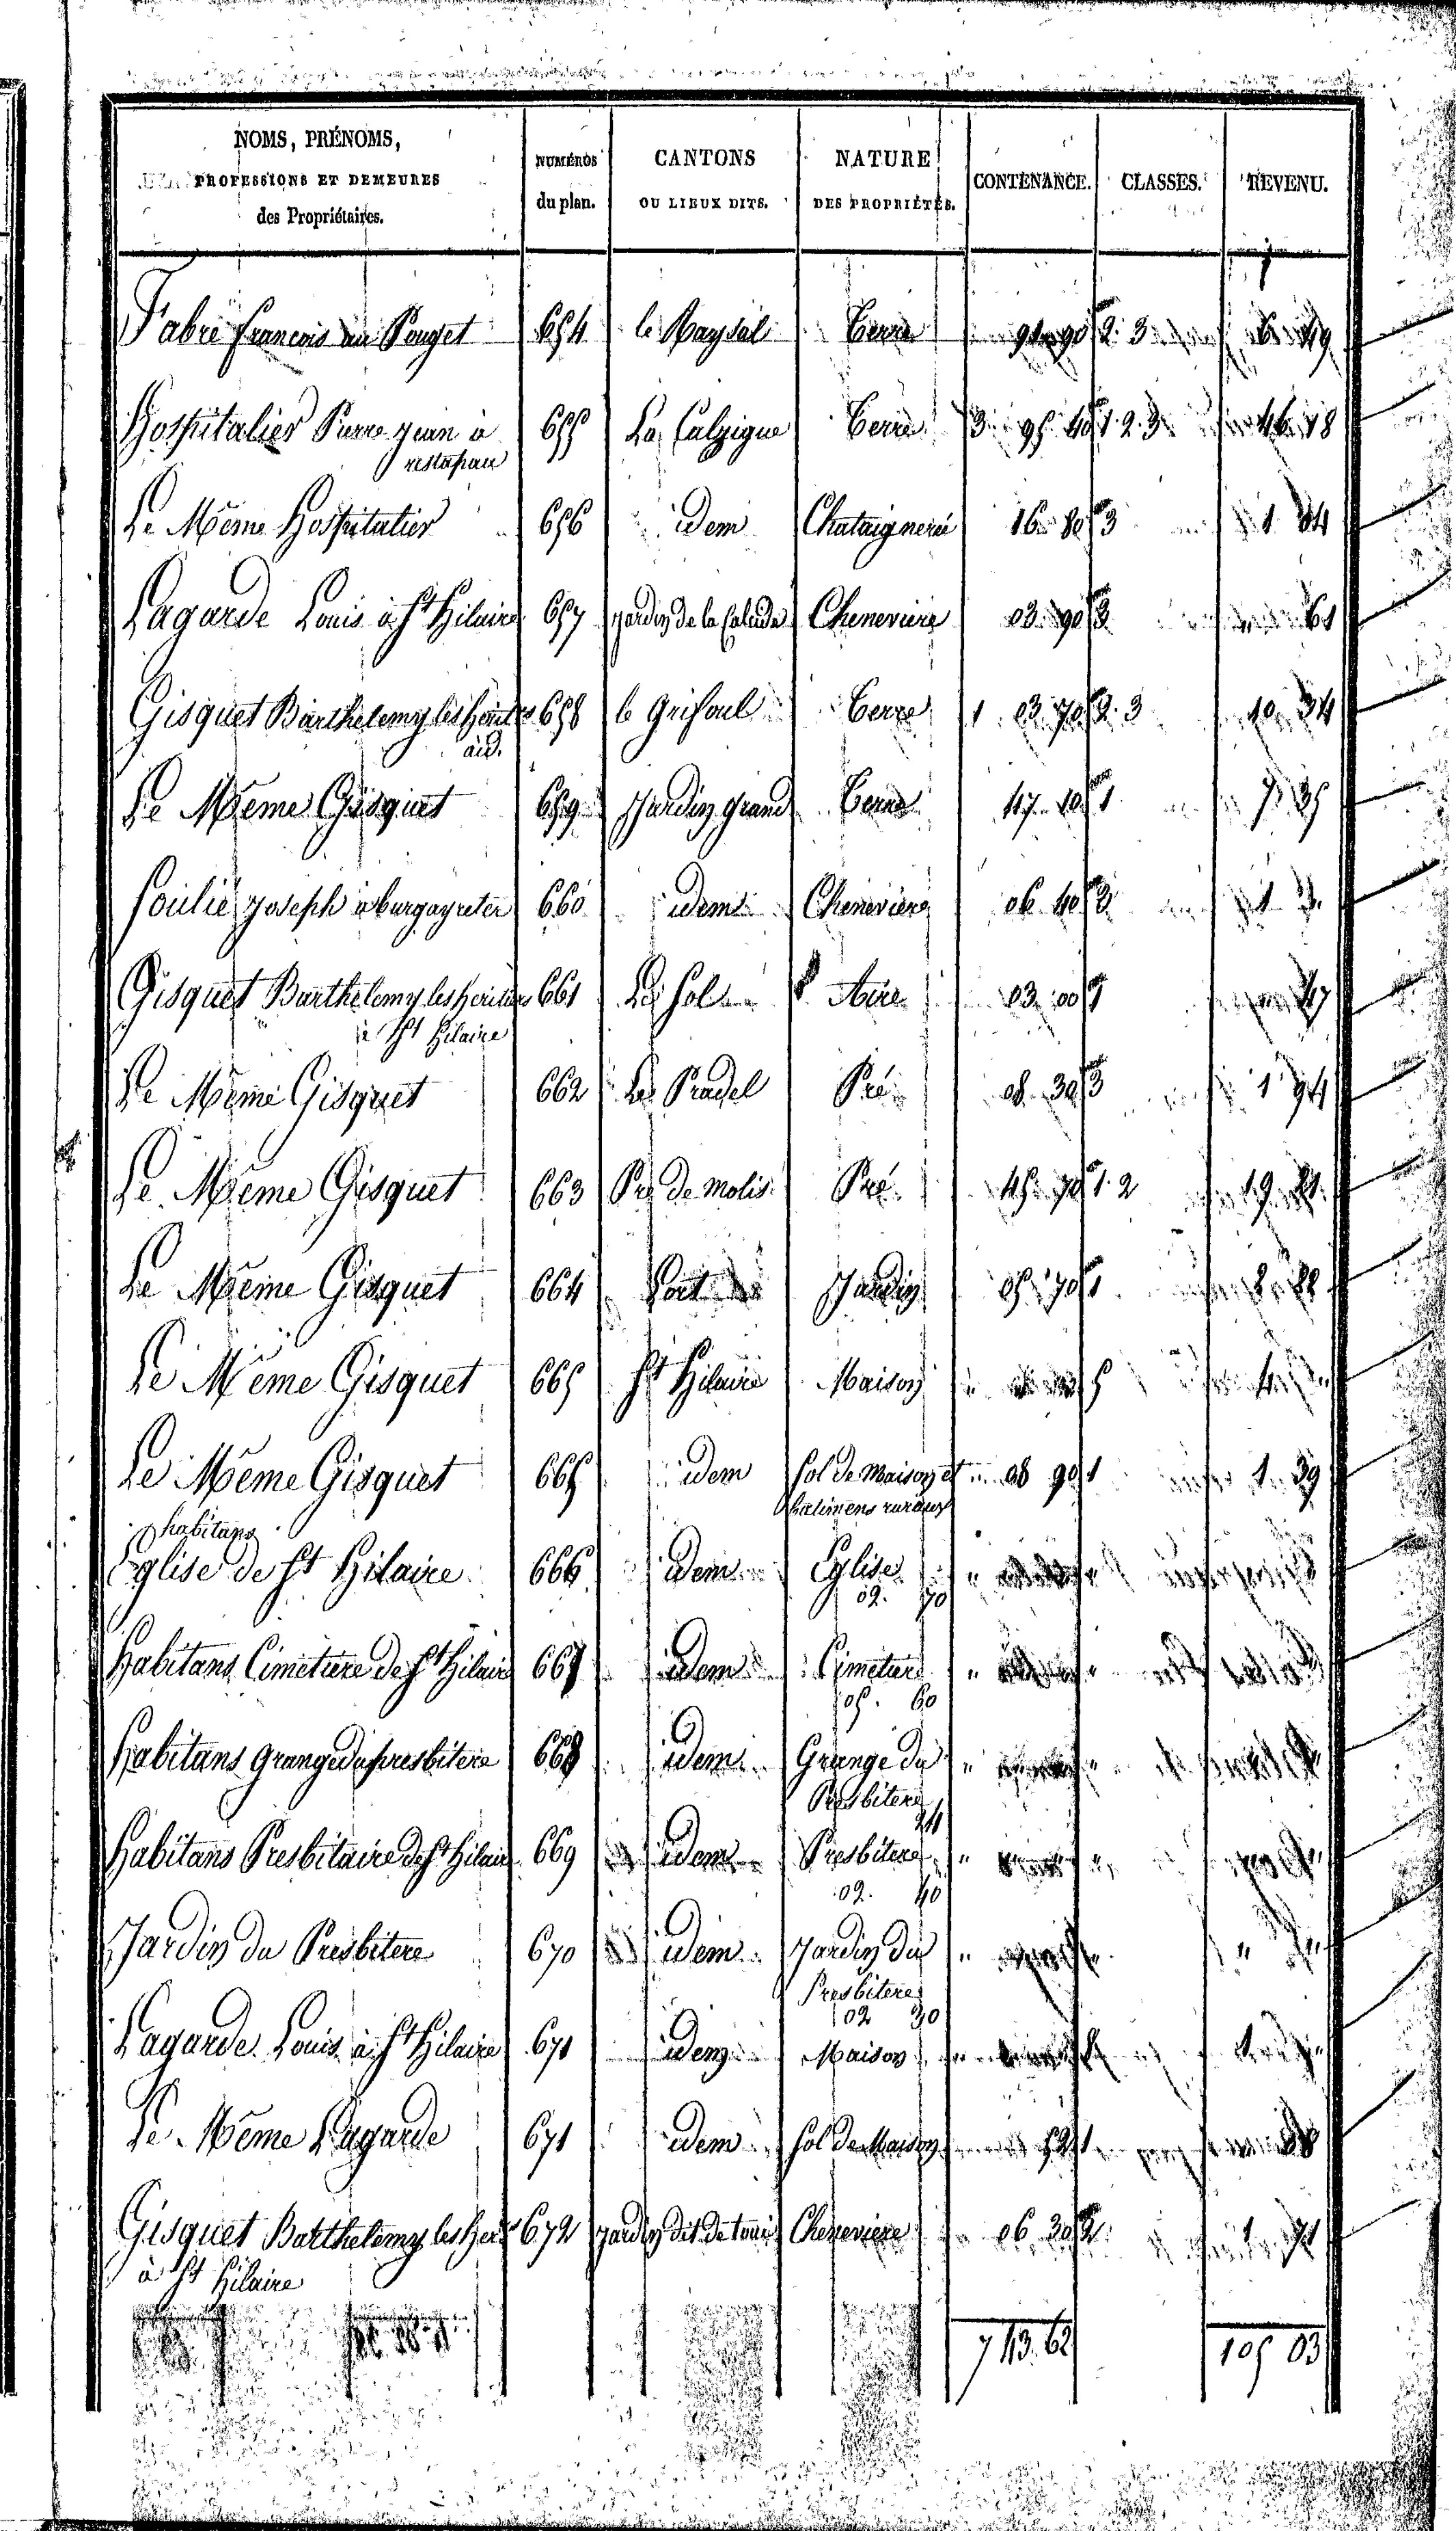 NOMS, PRÉNOMS,
PROFESSIONS ET DEMEURES
des Propriétaires.
NUMÉROS
du plan.
CANTONS
OU LIEUX DITS.
NATURE
DES PROPRIÉTÉS.
CONTENANCE.
CLASSES.
REVENU.
Fabre francois au Pouget 654 le Raysal Terre 2. 3
Hospitalier Pierre jean à 655 La Calzigue Terre 3 95 40 1. 2. 3 46 18
Le Même Hospitalier 656 idem Chataigneraie 16 80 3 1 84
Lagarde Louis à St Hilaire 657 jardin de la Calade Cheneviere 03 90 61
Gisquet Barthelemy les herit 658 le Grifoul Terre 1 03 70 2. 3 10 34
aud.
Le Même Gisquet 659 Jardin grand Terre 47 10 1 7 35
Soulié joseph 660 idem Cheneviere 06 40 1
Gisquet Barthelemy les heritiers 661 Le sol Aire 03 00 1 47
à St Hilaire
Le Même Gisquet 662 Le Pradel Pré 08 30 3 1 94
Le Même Gisquet 663 Pré de Molis Pré 45 70 1. 2
Le Même Gisquet 664 Jardin 05 70 1
Le Même Gisquet 665 St Hilaire Maison 5
Le Même Gisquet 665 idem sol de Maison et 08 90 1 1 39
batimens ruraux
habitans
Eglise de St Hilaire 666 idem Eglise
02. 70
Habitans Cimetiere de St Hilaire 667 idem Cimetiere
05. 60
Habitans grange du presbitere 668 idem Grange du
Presbitere
24
Habitans Presbitaire de St Hilaire 669 idem Presbitere
02. 40
Jardin du Presbitere 670 idem Jardin du
Presbitere
02 30
Lagarde Louis à St Hilaire 671 idem Maison
Le Même Lagarde 671 idem sol de Maison 52 1
Gisquet Barthelemy les her 672 jardin dit de Cheneviere 06 30 2 1 71
à St Hilaire
7 43. 62 105 03